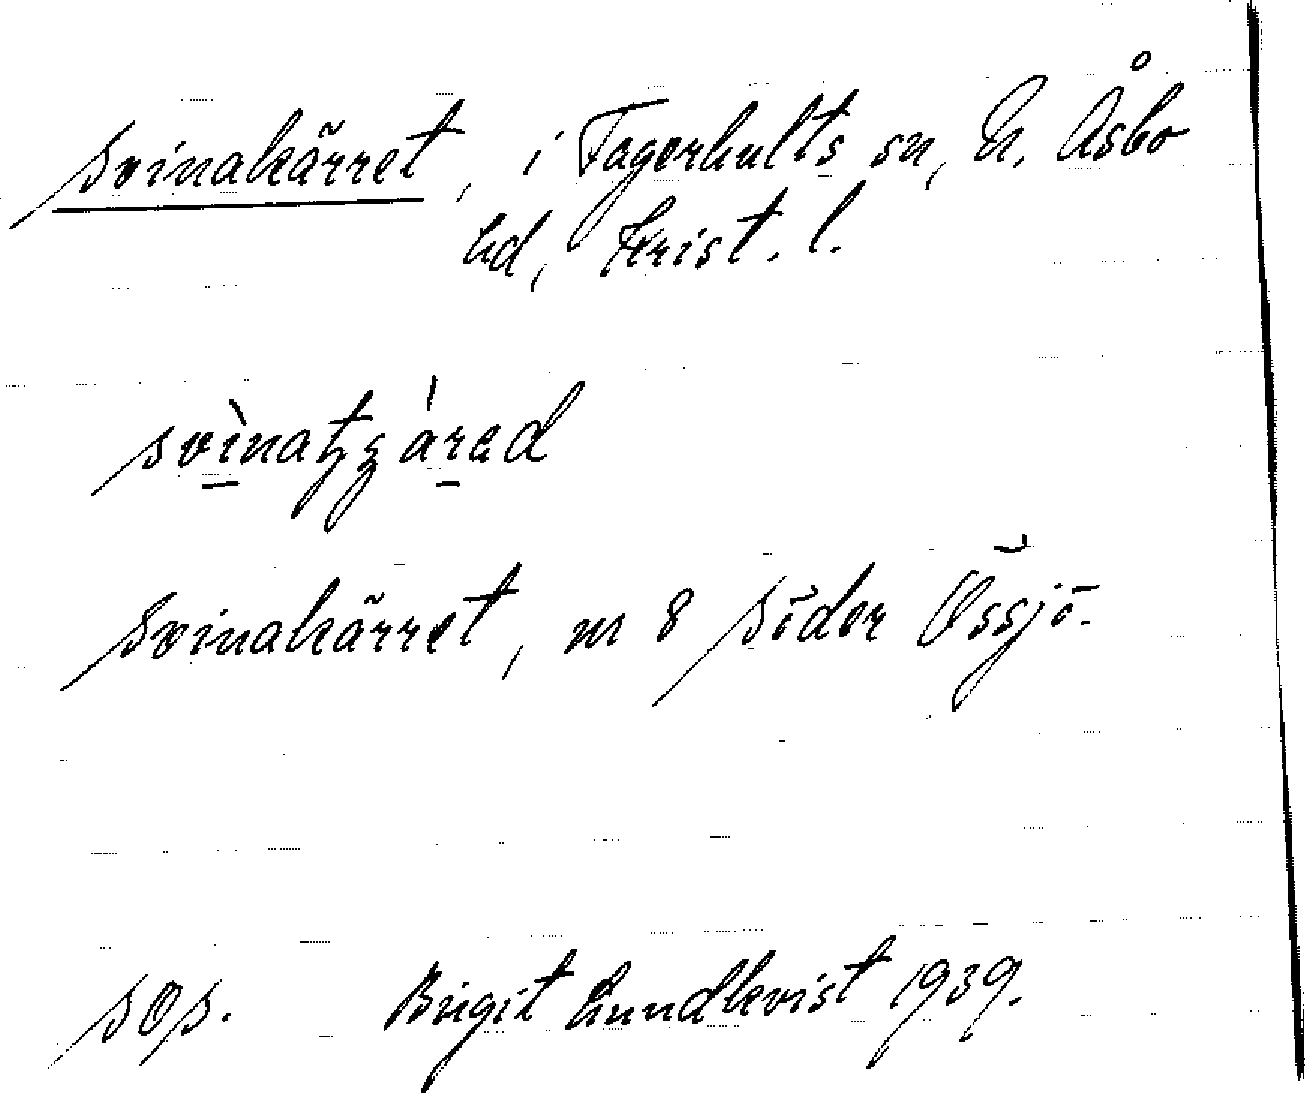 Svinakärret, i Fagerhults sn, N. Åsbo
hd, Krist. l.
Svinakärret, nr 8 Söder Össjö.
SOS. Birgit Lundkvist 1939.